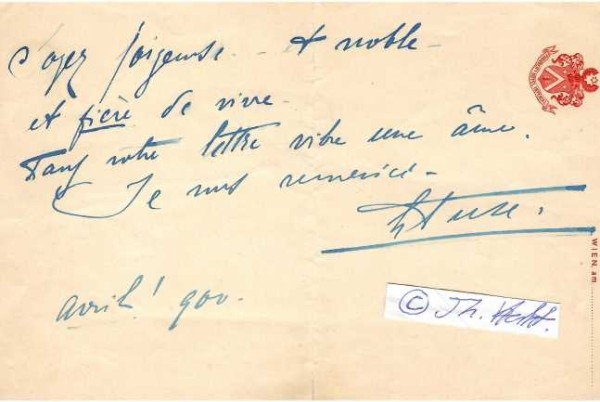 Soyez joyeuse - et noble -
et fière de vivre -
Dans votre lettre vibre une âme.
Je vous remercie -
EDuse.
avril! 900.
WIEN, am
© Th. Hecht.